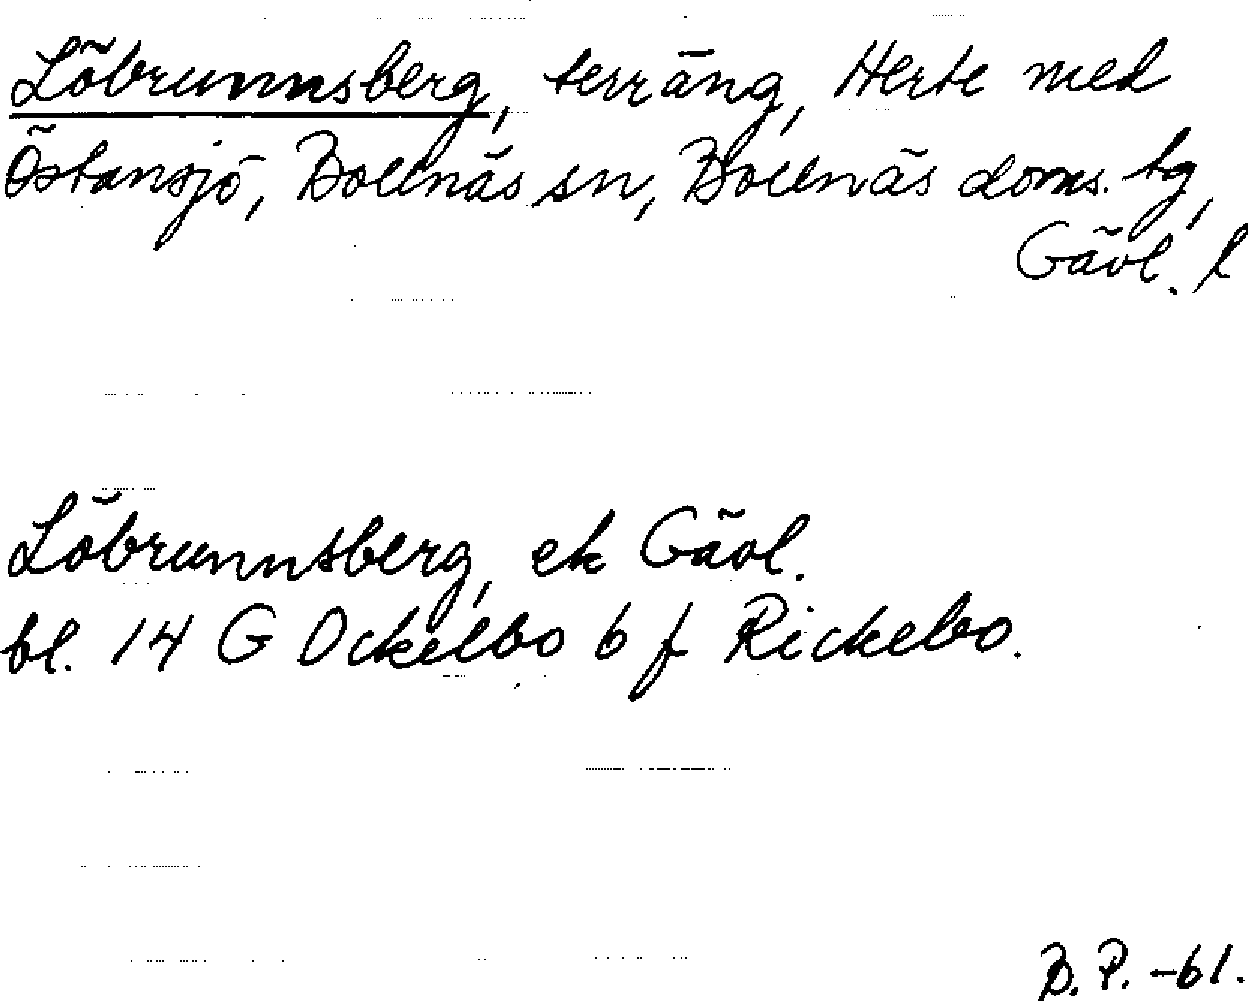 Löbrunnsberg, terräng, Herte med
Östansjö, Bollnäs sn, Bollnäs doms. tg,
Gävl. l
Löbrunnsberg, ek Gävl.
bl. 14 G Ockelbo b f Rickebo.
B. P. -61.